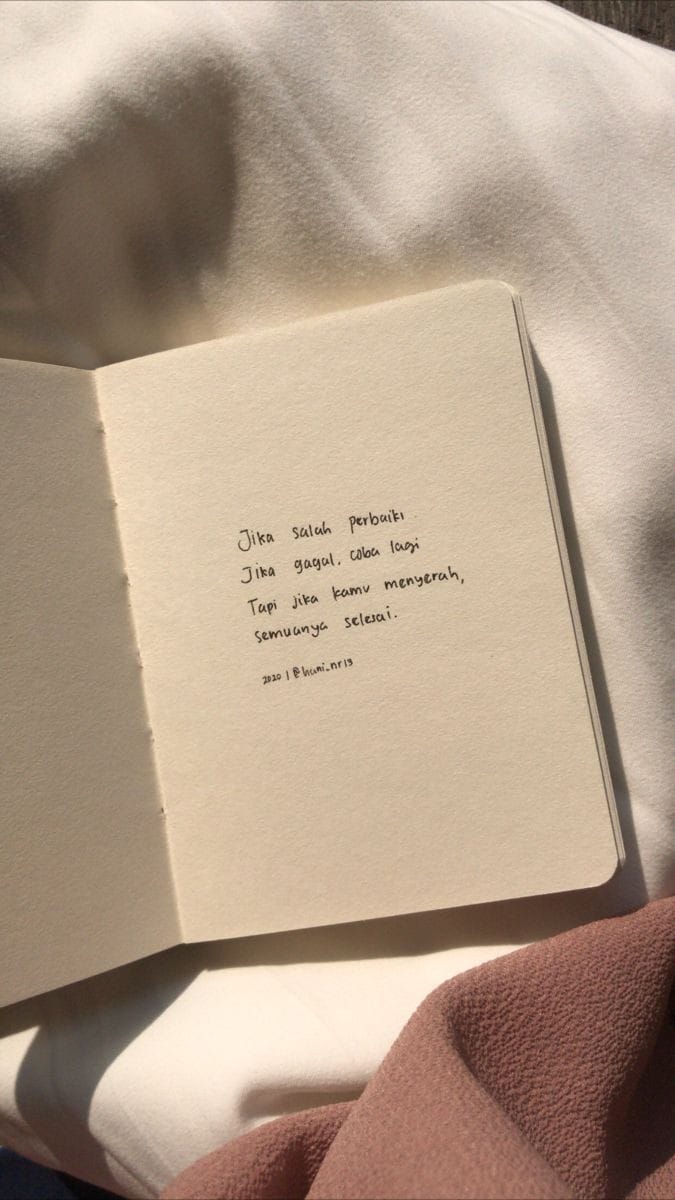 Jika salah perbaiki
Jika gagal, coba lagi
Tapi jika kamu menyerah,
semuanya selesai.
2020 | @hani_nr13